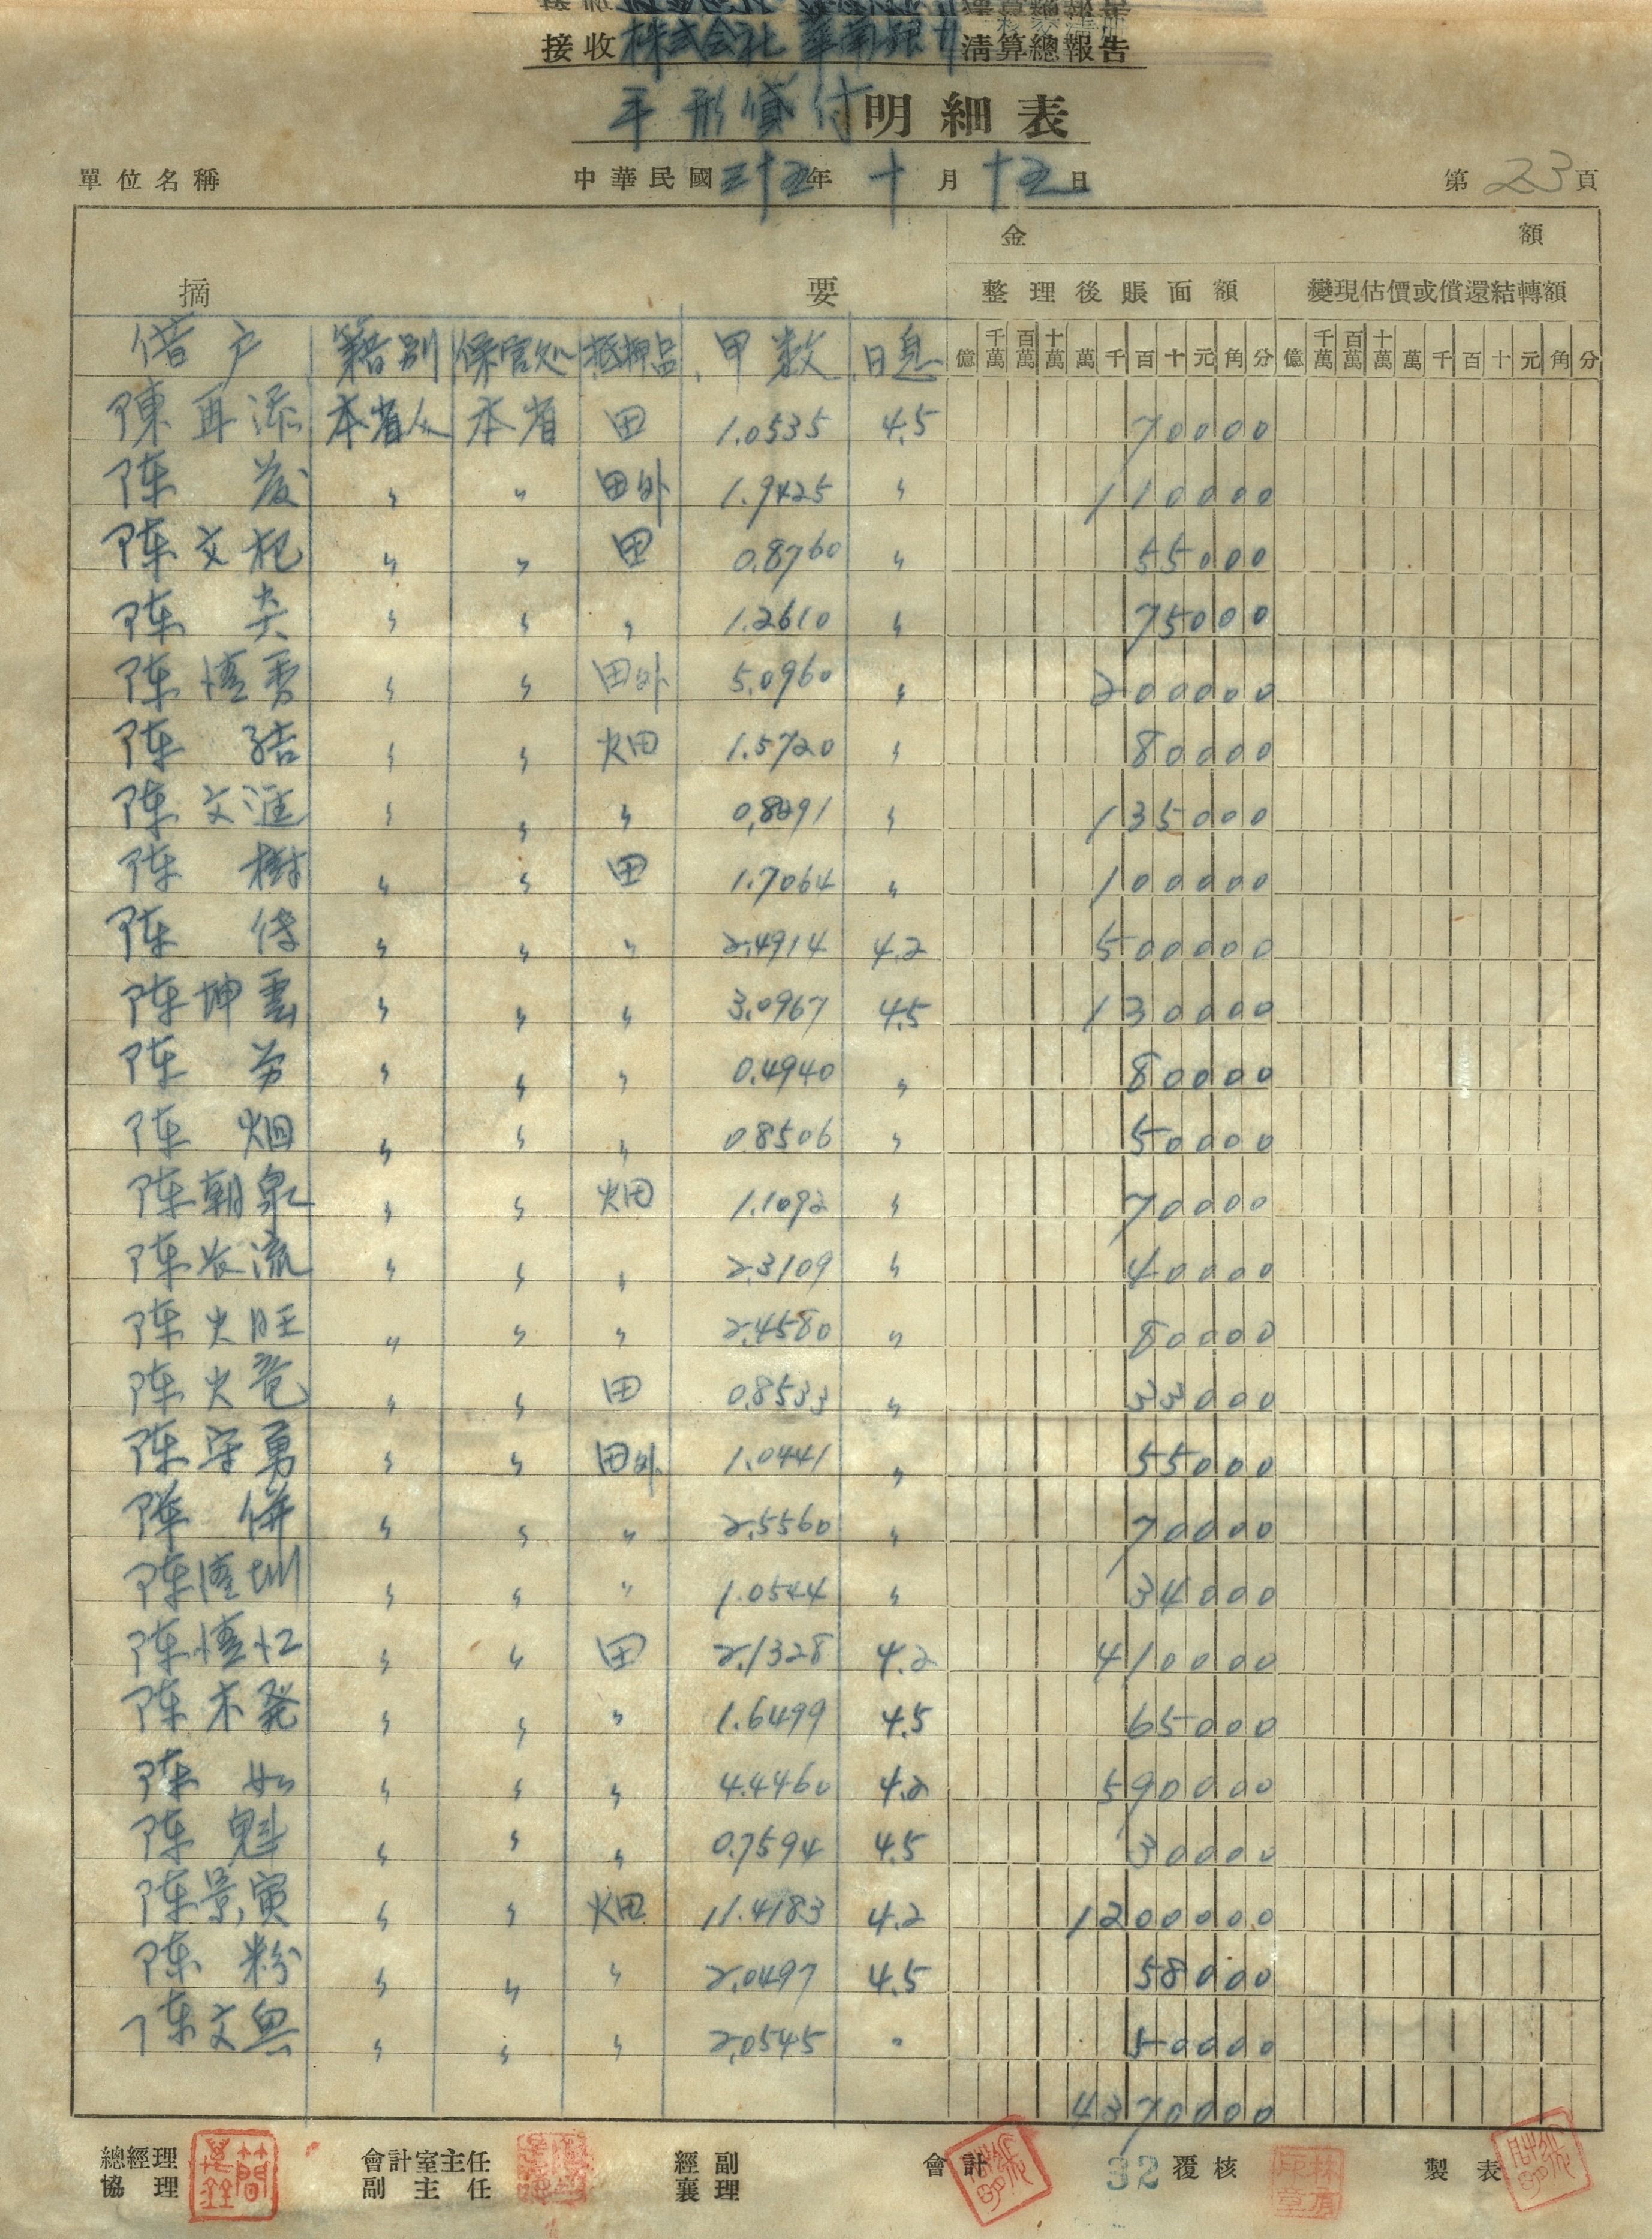 接收株式会社華南銀行清算總報告
年形貸付明細表
單位名稱 中華民國三十五年十月十五日 第23頁
金額
摘要 整理後賬面額 變現估價或償還結轉額
借戶 籍別 保管处 抵押品 甲数 日息 億 千萬 百萬 十萬 萬 千 百 十 元 角 分 億 千萬 百萬 十萬 萬 千 百 十 元 角 分
陳再添 本省人 本省 田 1.0535 4.5 70000
陈發 〃 〃 田外 1.9425 〃 110000
陈文杞 〃 〃 田 0.8760 〃 55000
陈尖 〃 〃 〃 1.2610 〃 75000
陈 〃 〃 田外 5.0960 〃 200000
陈結 〃 〃 畑 1.5720 〃 80000
陈文滙 〃 〃 〃 0.8291 〃 135000
陈樹 〃 〃 田 1.7064 〃 100000
陈 〃 〃 〃 2.4914 4.2 500000
陈坤雲 〃 〃 〃 3.0967 4.5 130000
陈 〃 〃 〃 0.4940 〃 80000
陈烟 〃 〃 〃 0.8506 〃 50000
陈朝泉 〃 〃 畑 1.1092 〃 70000
陈流 〃 〃 〃 2.3109 〃 40000
陈火旺 〃 〃 〃 2.4580 〃 80000
陈火竜 〃 〃 田 0.8533 〃 33000
陈守勇 〃 〃 田外 1.0441 〃 55000
陈併 〃 〃 〃 2.5560 〃 70000
陈圳 〃 〃 〃 1.0544 〃 34000
陈 〃 〃 田 2.1328 4.2 410000
陈木発 〃 〃 〃 1.6499 4.5 65000
陈如 〃 〃 〃 4.4460 4.2 590000
陈魁 〃 〃 〃 0.7594 4.5 30000
陈景寅 〃 〃 畑 11.4183 4.2 1200000
陈粉 〃 〃 〃 2.0497 4.5 58000
陈文 〃 〃 〃 2.0545 〃 50000
4370000
總經理 會計室主任 經副 會計 32 覆核 製表
協理 副主任 襄理